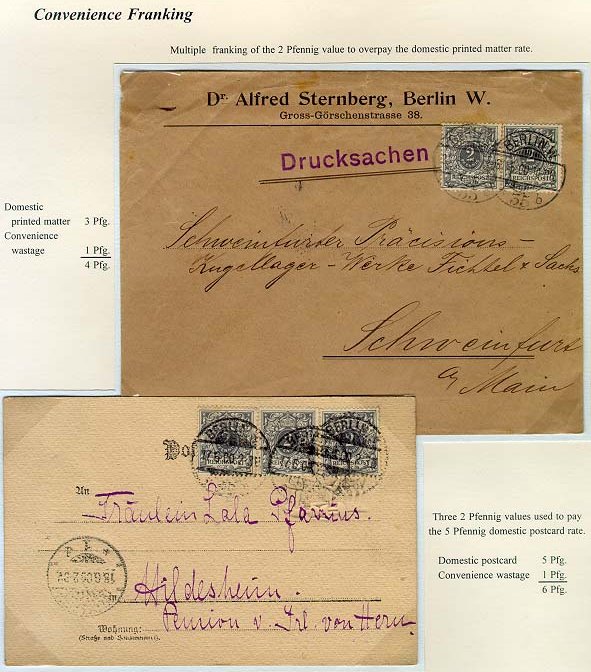 Convenience Franking
Multiple franking of the 2 Pfennig value to overpay the domestic printed matter rate.
Dr. Alfred Sternberg, Berlin W.
Gross-Görschenstrasse 38.
Drucksachen
BERLIN
2
REICHSPOST
Domestic
printed matter 3 Pfg.
Convenience
wastage 1 Pfg.
4 Pfg.
Schweinfurter Präcisions-
Kugellager-Werke Fichtel & Sachs
Schweinfurt
a/ Main
BERLIN
An
Fräulein Lala
Hildesheim.
Pension v. Frl. von Horn
Wohnung:
(Straße und Hausnummer).
Three 2 Pfennig values used to pay
the 5 Pfennig domestic postcard rate.
Domestic postcard 5 Pfg.
Convenience wastage 1 Pfg.
6 Pfg.